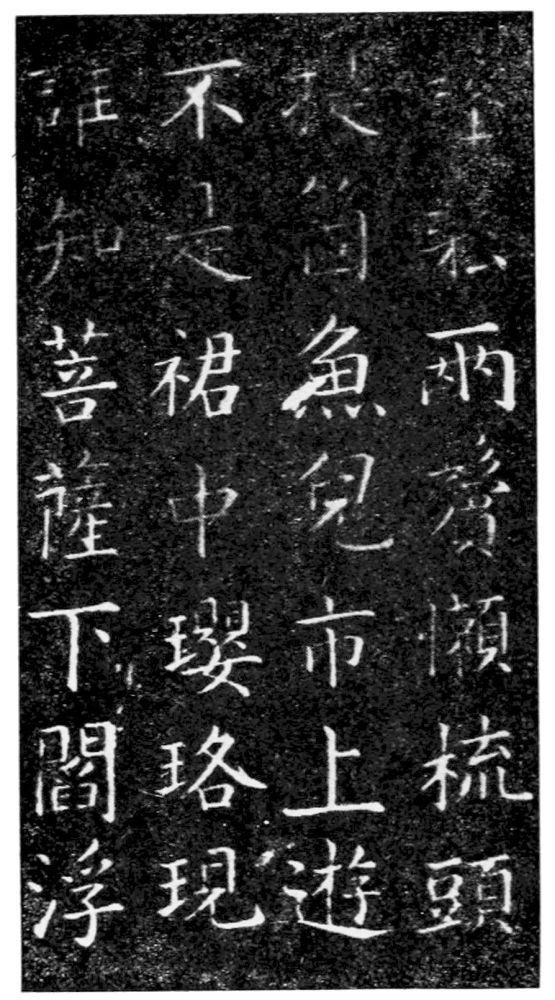 兩鬢懶梳頭
提箇魚兒市上遊
不是裙中瓔珞現
誰知菩薩下閻浮